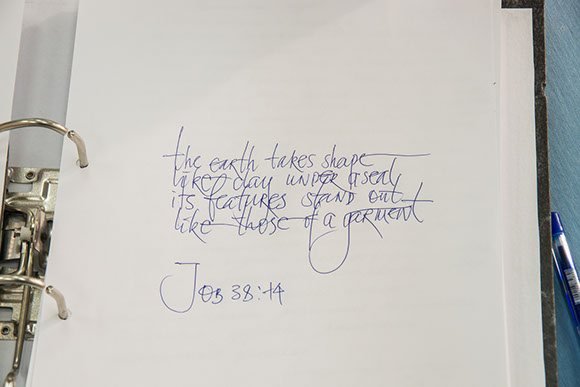 the earth takes shape
like clay under a seal,
its features stand out
like those of a garment
Job 38:14